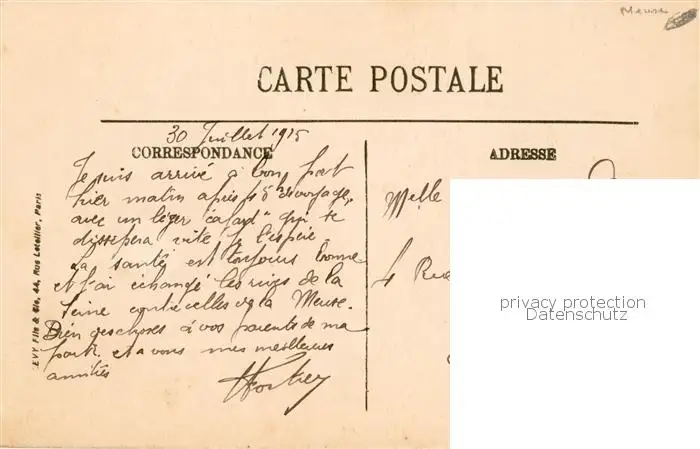 Meuse
CARTE POSTALE
30 Juillet 1915
CORRESPONDANCE
ADRESSE
Je suis arrivé à bon port
hier matin après voyage,
avec un léger "cafard" qui se
dissipera vite je l'espère
La santé est toujours bonne
et j'ai échangé les rives de la
Seine contre celles de la Meuse.
Bien des choses à vos parents de ma
part. et a vous mes meilleures
amitiés
Melle
4 Rue
LEVY Fils & Cie, 44, Rue Letellier, Paris
privacy protection
Datenschutz